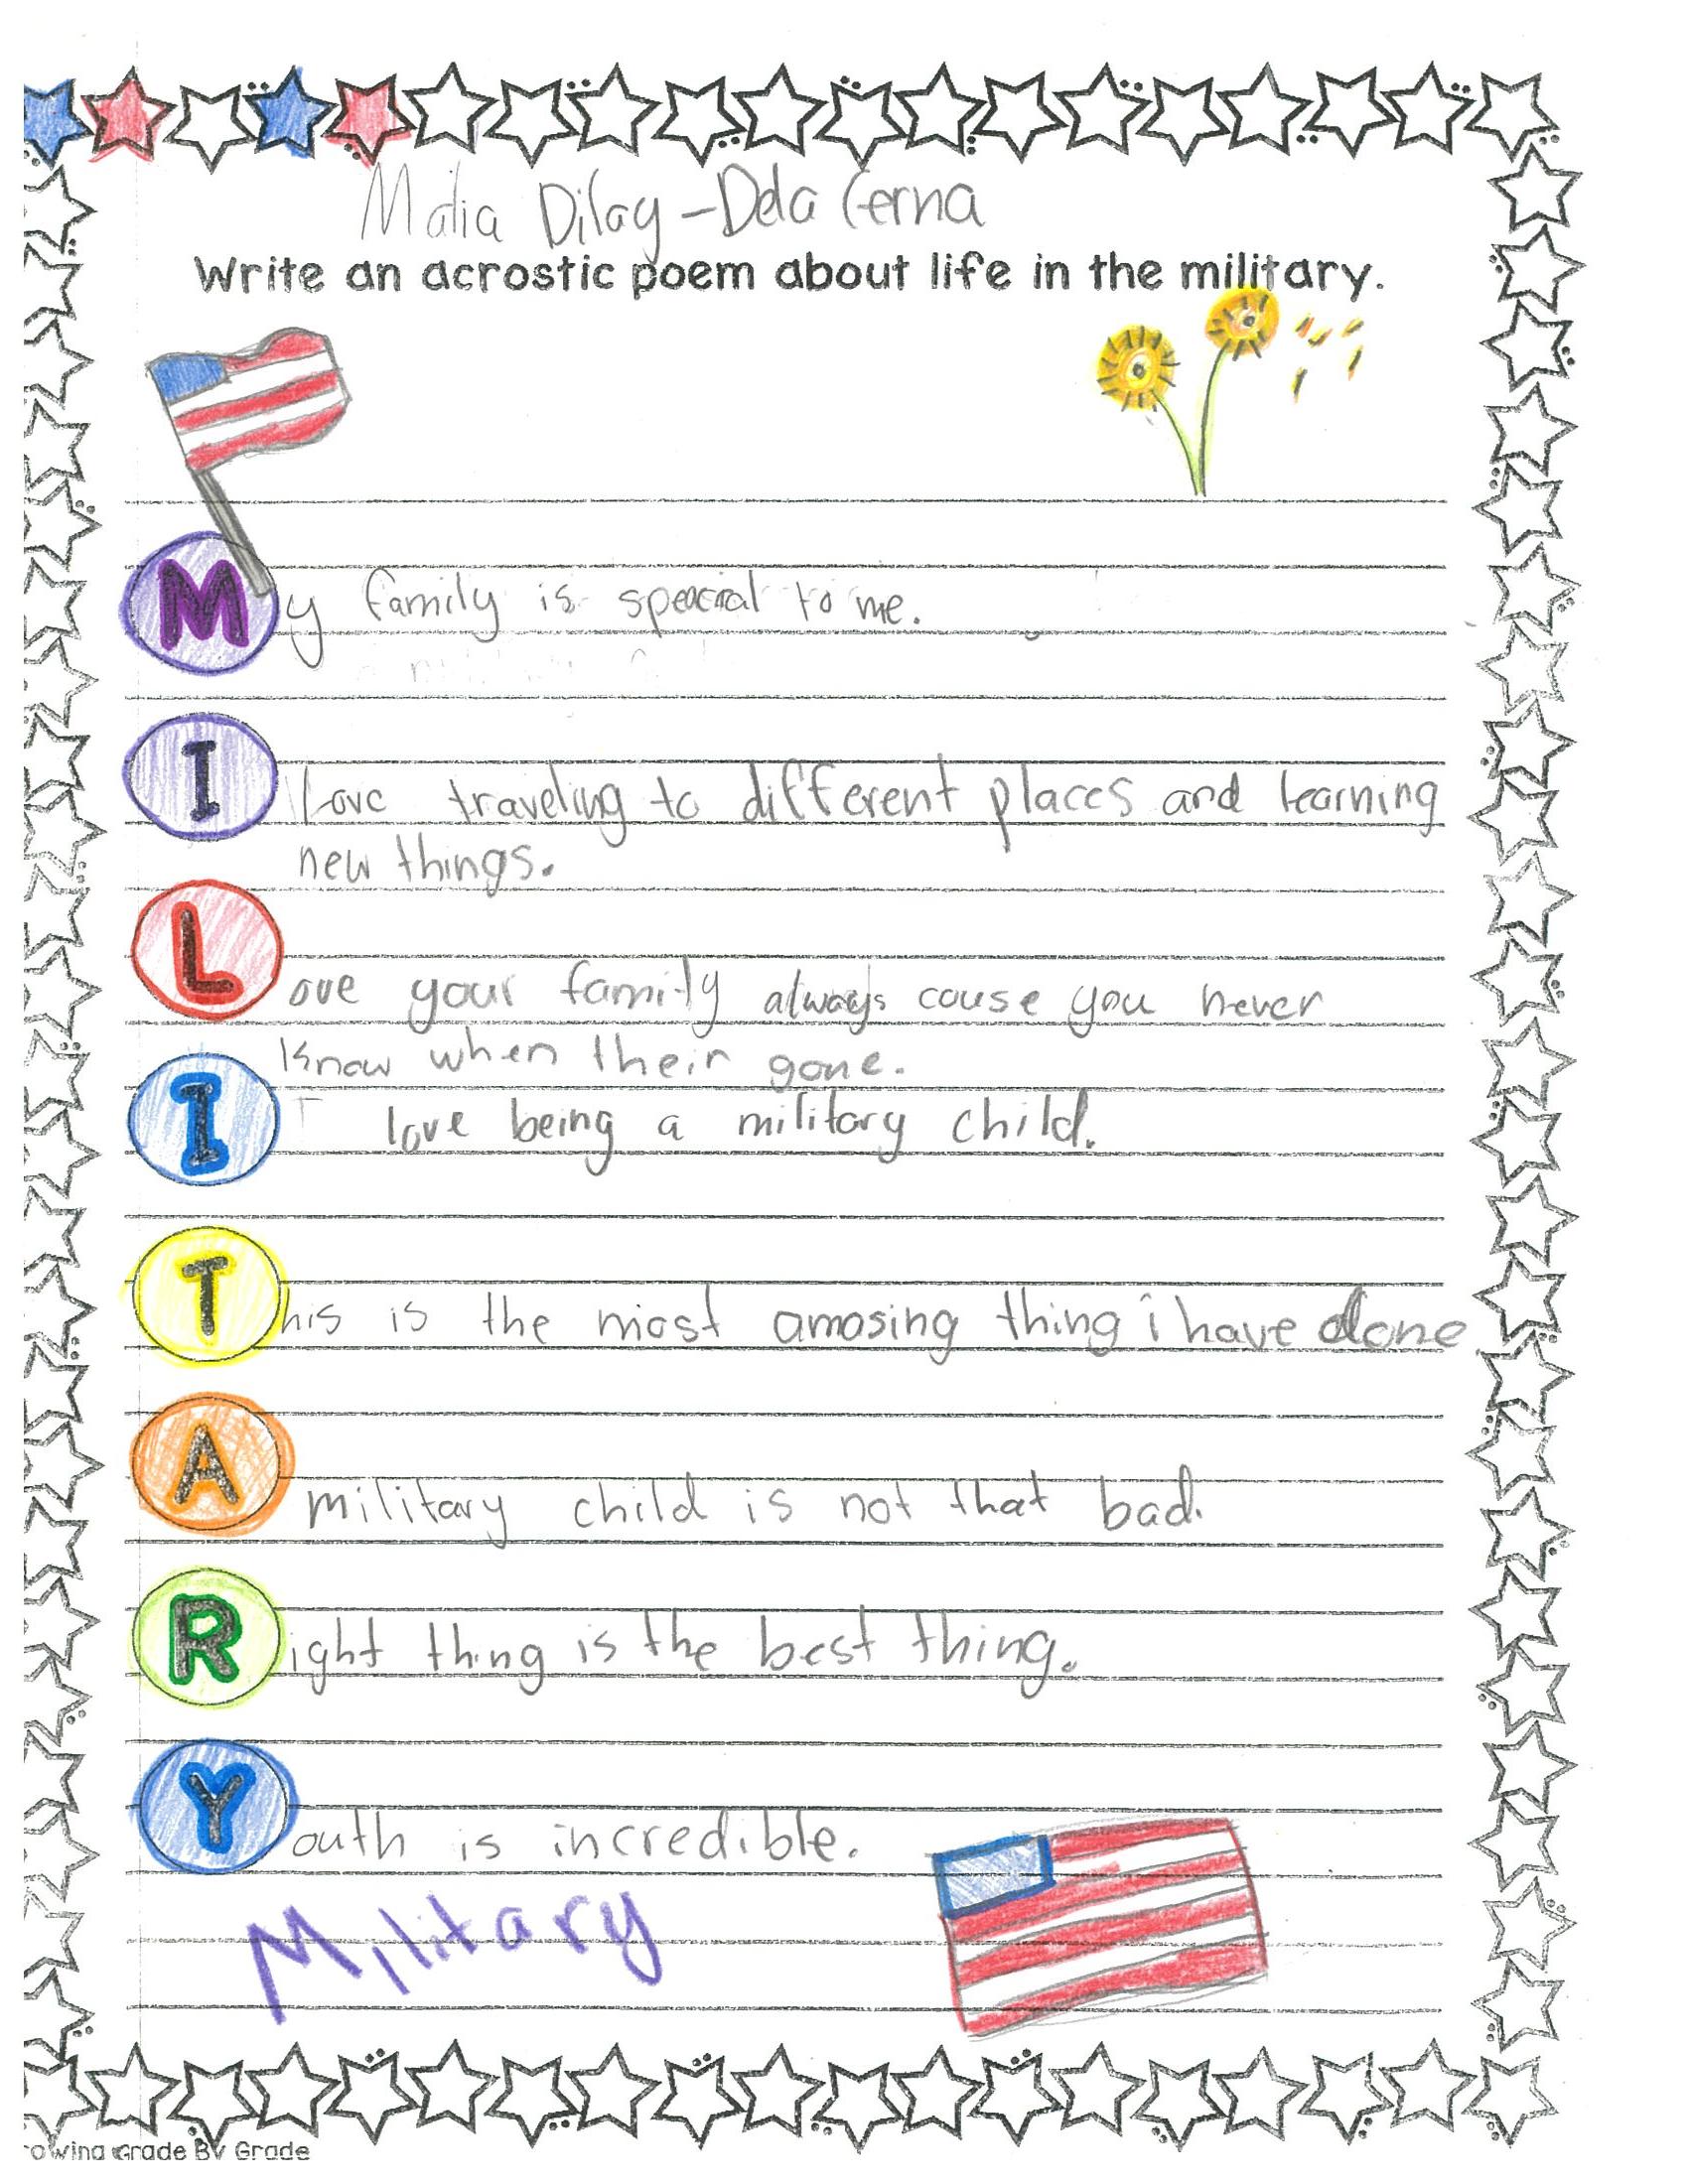 Malia Dilay-Dela Cerna
Write an acrostic poem about life in the military.
My family is special to me.
I love traveling to different places and learning
new things.
Love your family always couse you never
know when their gone.
I love being a military child.
This is the most amosing thing i have done.
A military child is not that bad.
Right thing is the best thing.
Youth is incredible.
Military
rowing Grade By Grade